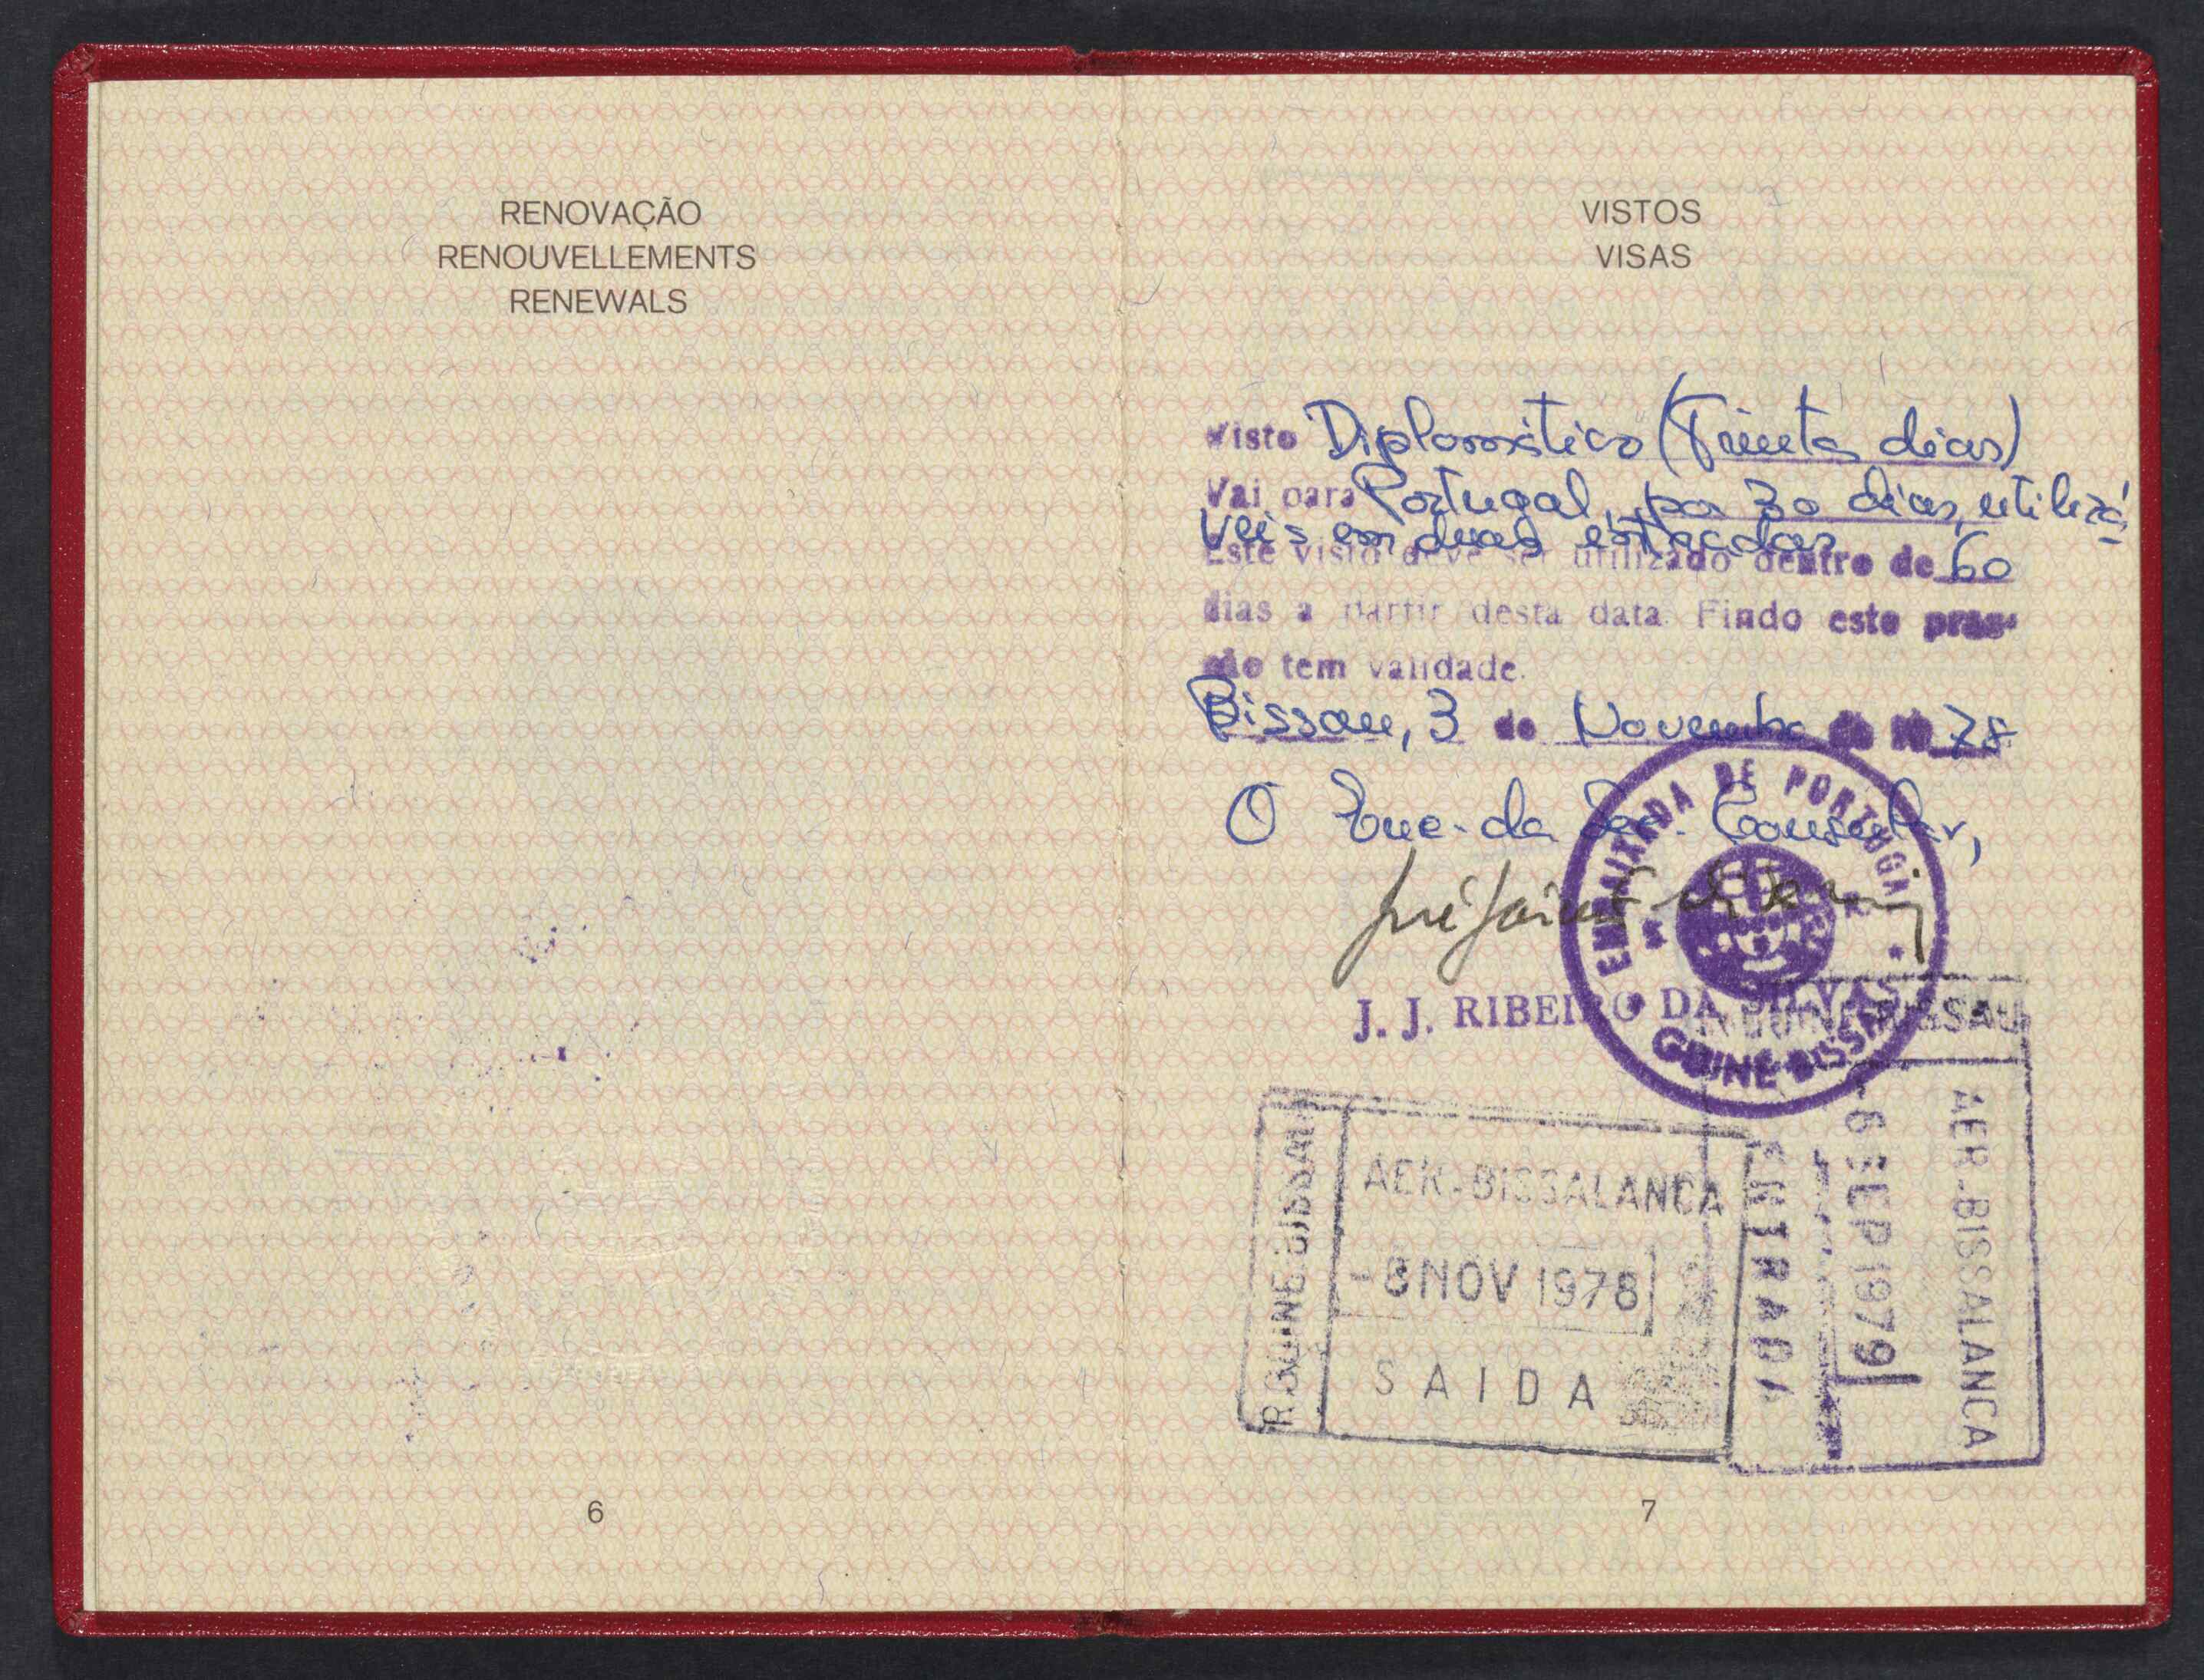 RENOVAÇÃO
RENOUVELLEMENTS
RENEWALS
6
VISTOS
VISAS
Visto Diplomático (Trinta dias)
Vai para Portugal, por 30 dias, utilizá-
veis em duas estadas
Este visto deve ser utilizado dentro de 60
dias a partir desta data. Findo este praso
não tem validade.
Bissau, 3 de Novembro de 19 78
O Enc. da Sec. Consular,
J. J. RIBEIRO DA SILVA
EMBAIXADA DE PORTUGAL
GUINÉ-BISSAU
R. GUINE-BISSAU
AER-BISSALANCA
-8 NOV 1978
SAIDA
R. GUINE-BISSAU
AER-BISSALANCA
-6 SEP 1979
ENTRADA
7